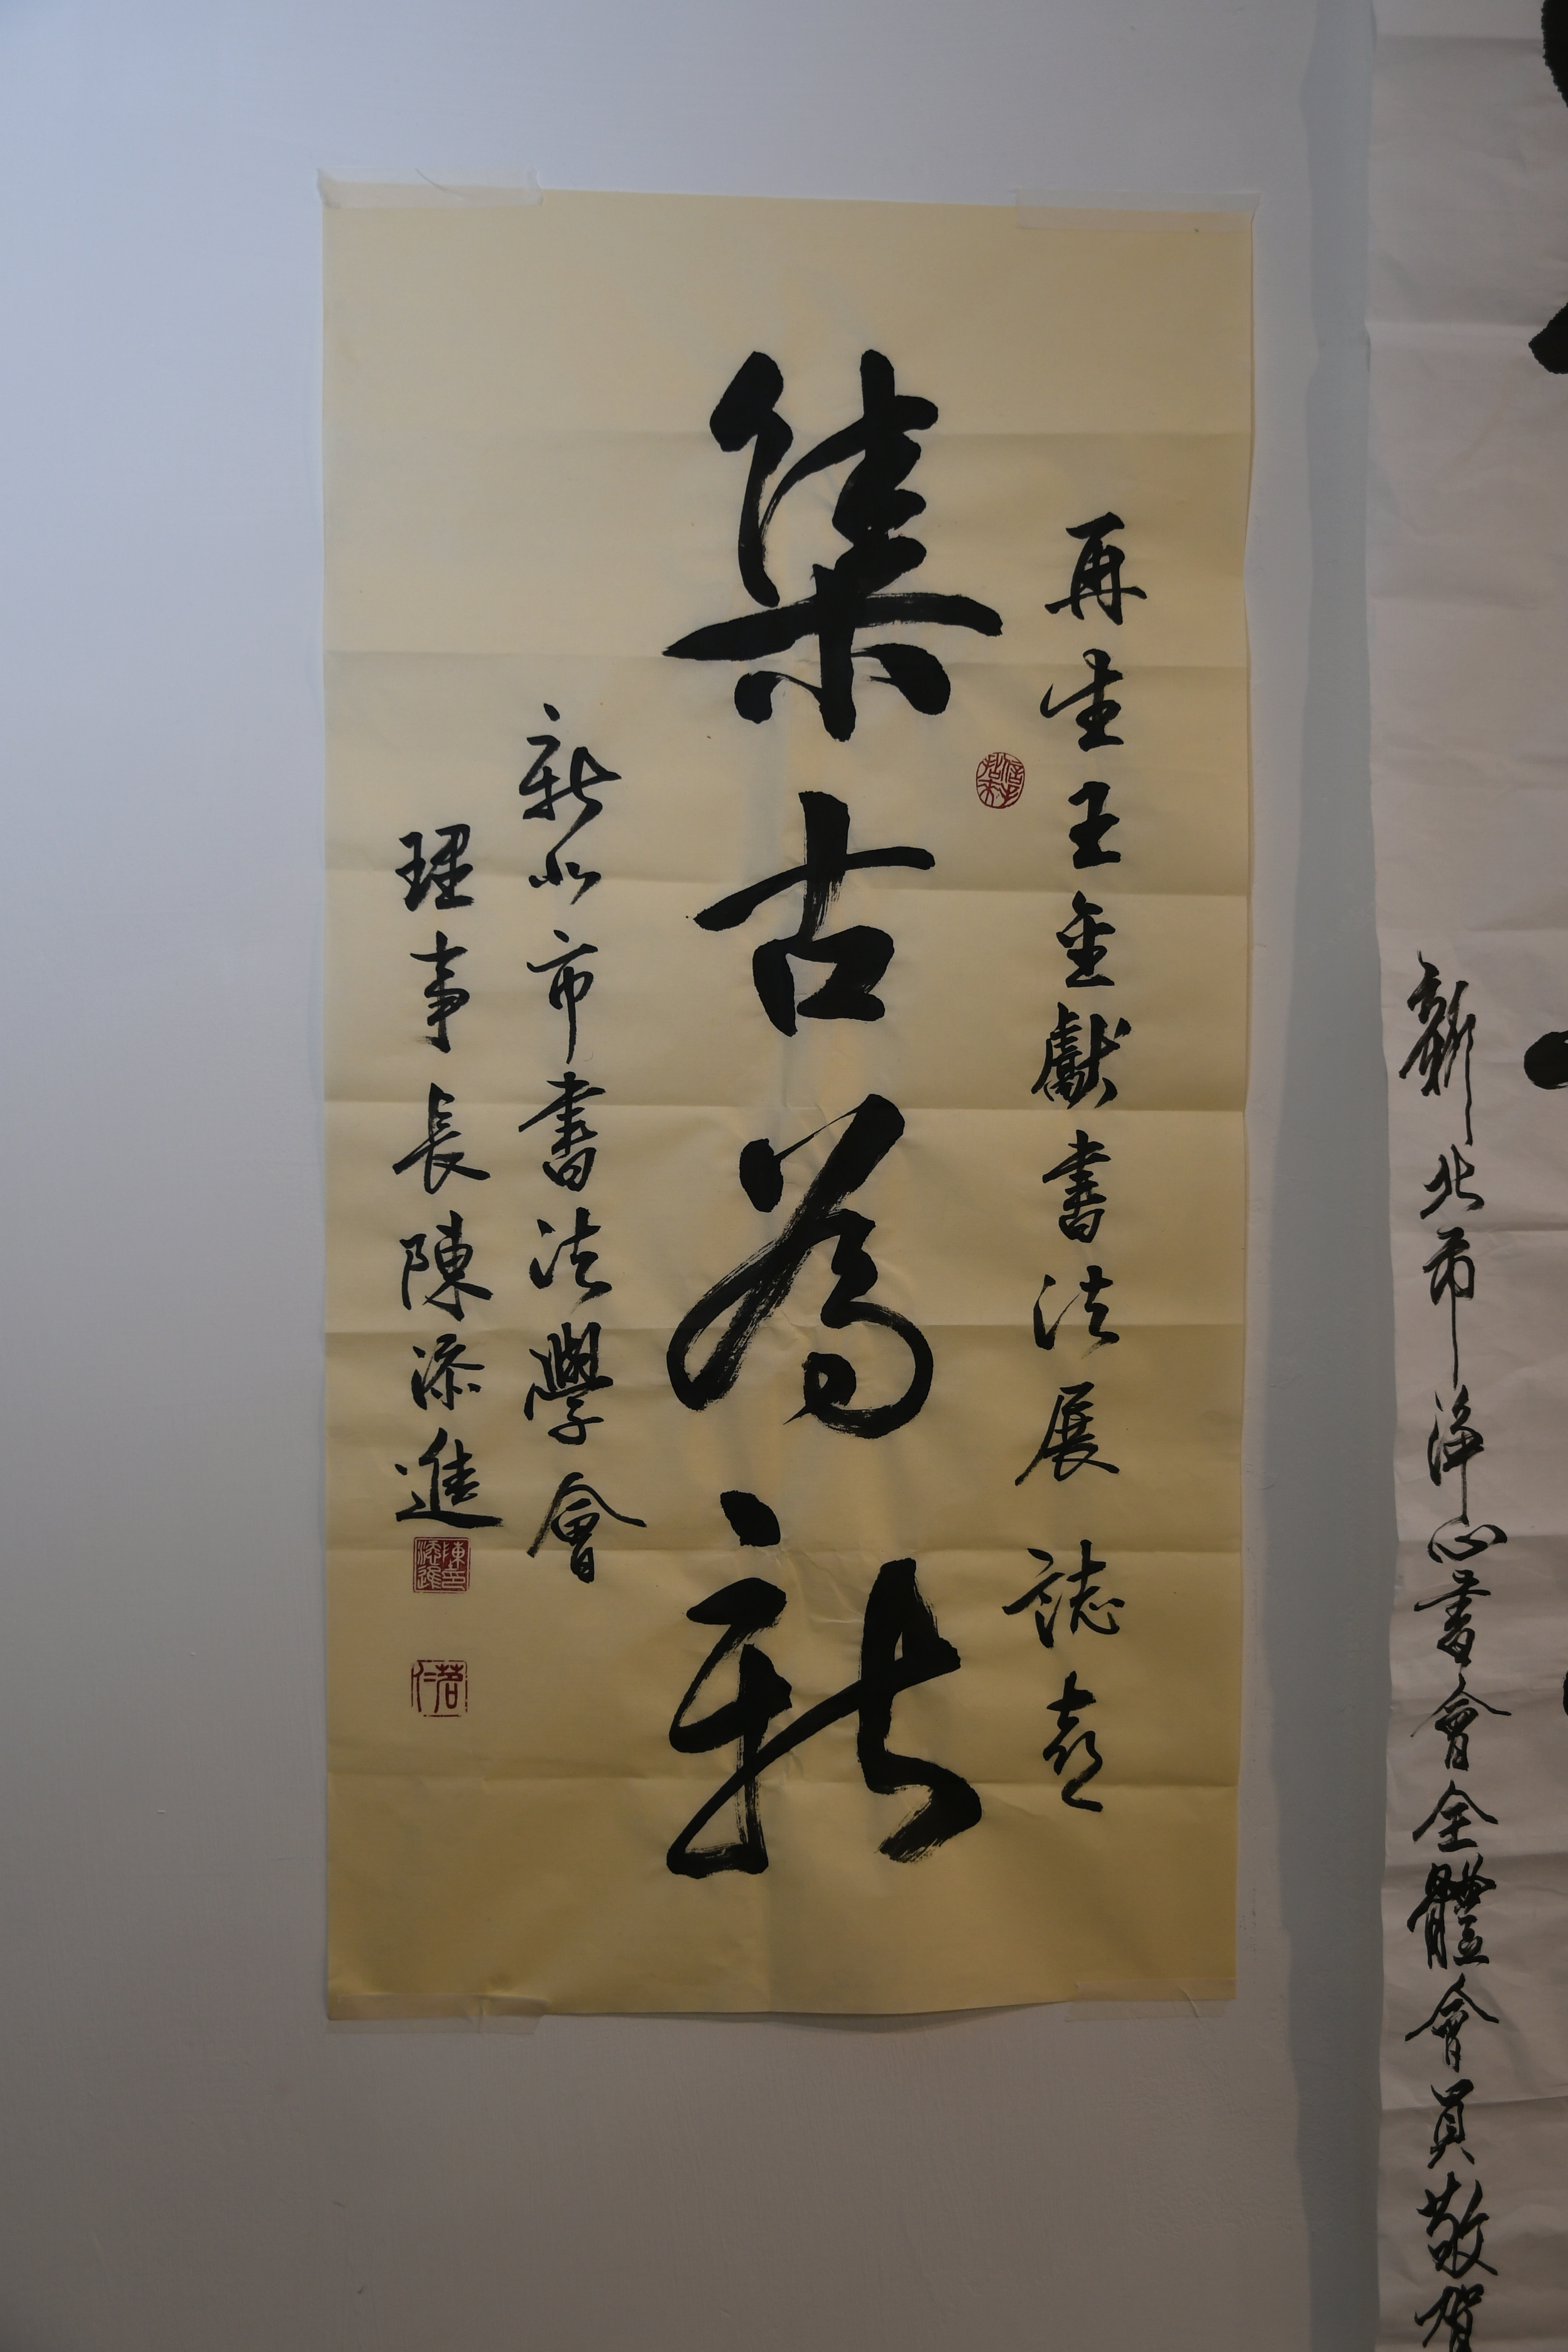 再生王金獻書法展 誌喜
集古為新
新北市書法學會
理事長陳添進
陳添進印
茗仁
新北市淨心書會全體會員敬賀